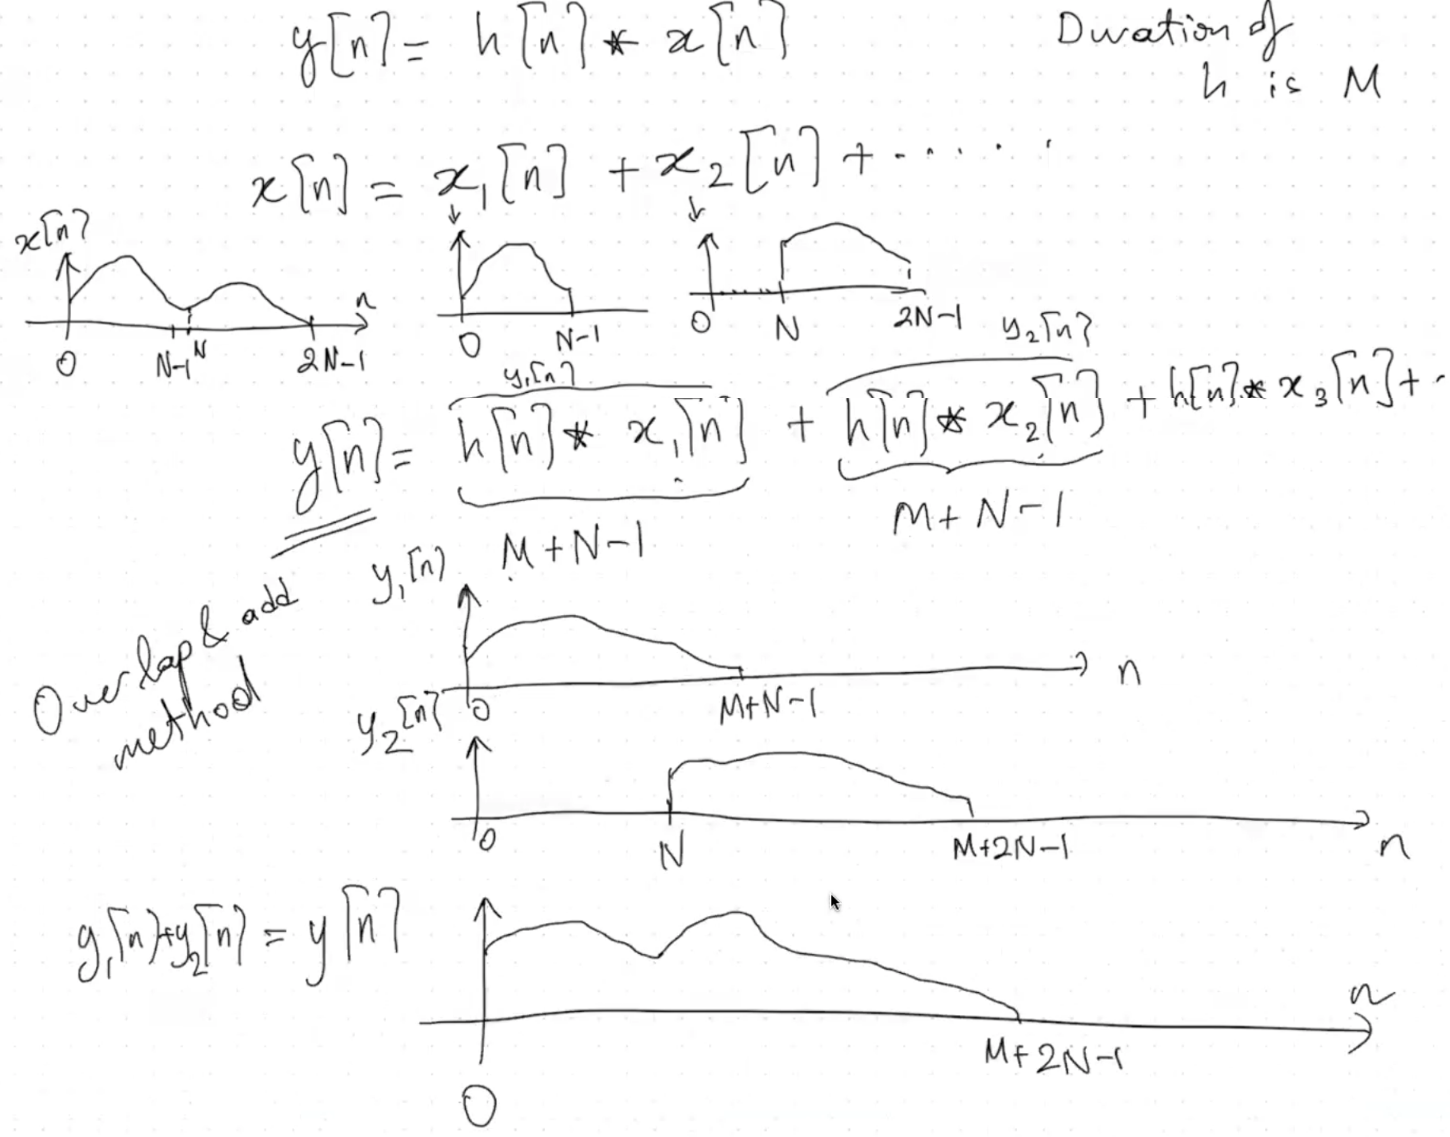 y[n] = h[n] * x[n]
Duration of
h is M
x[n] = x₁[n] + x₂[n] + · · · · ·
x[n]
n
0 N-1 N 2N-1
0 N-1
0 N 2N-1
y₁[n]
y₂[n]
y[n] = h[n] * x₁[n] + h[n] * x₂[n] + h[n] * x₃[n] + ·
M+N-1
M+N-1
Overlap & add
method
y₁[n]
n
0 M+N-1
y₂[n]
n
0 N M+2N-1
y₁[n]+y₂[n] = y[n]
n
0 M+2N-1